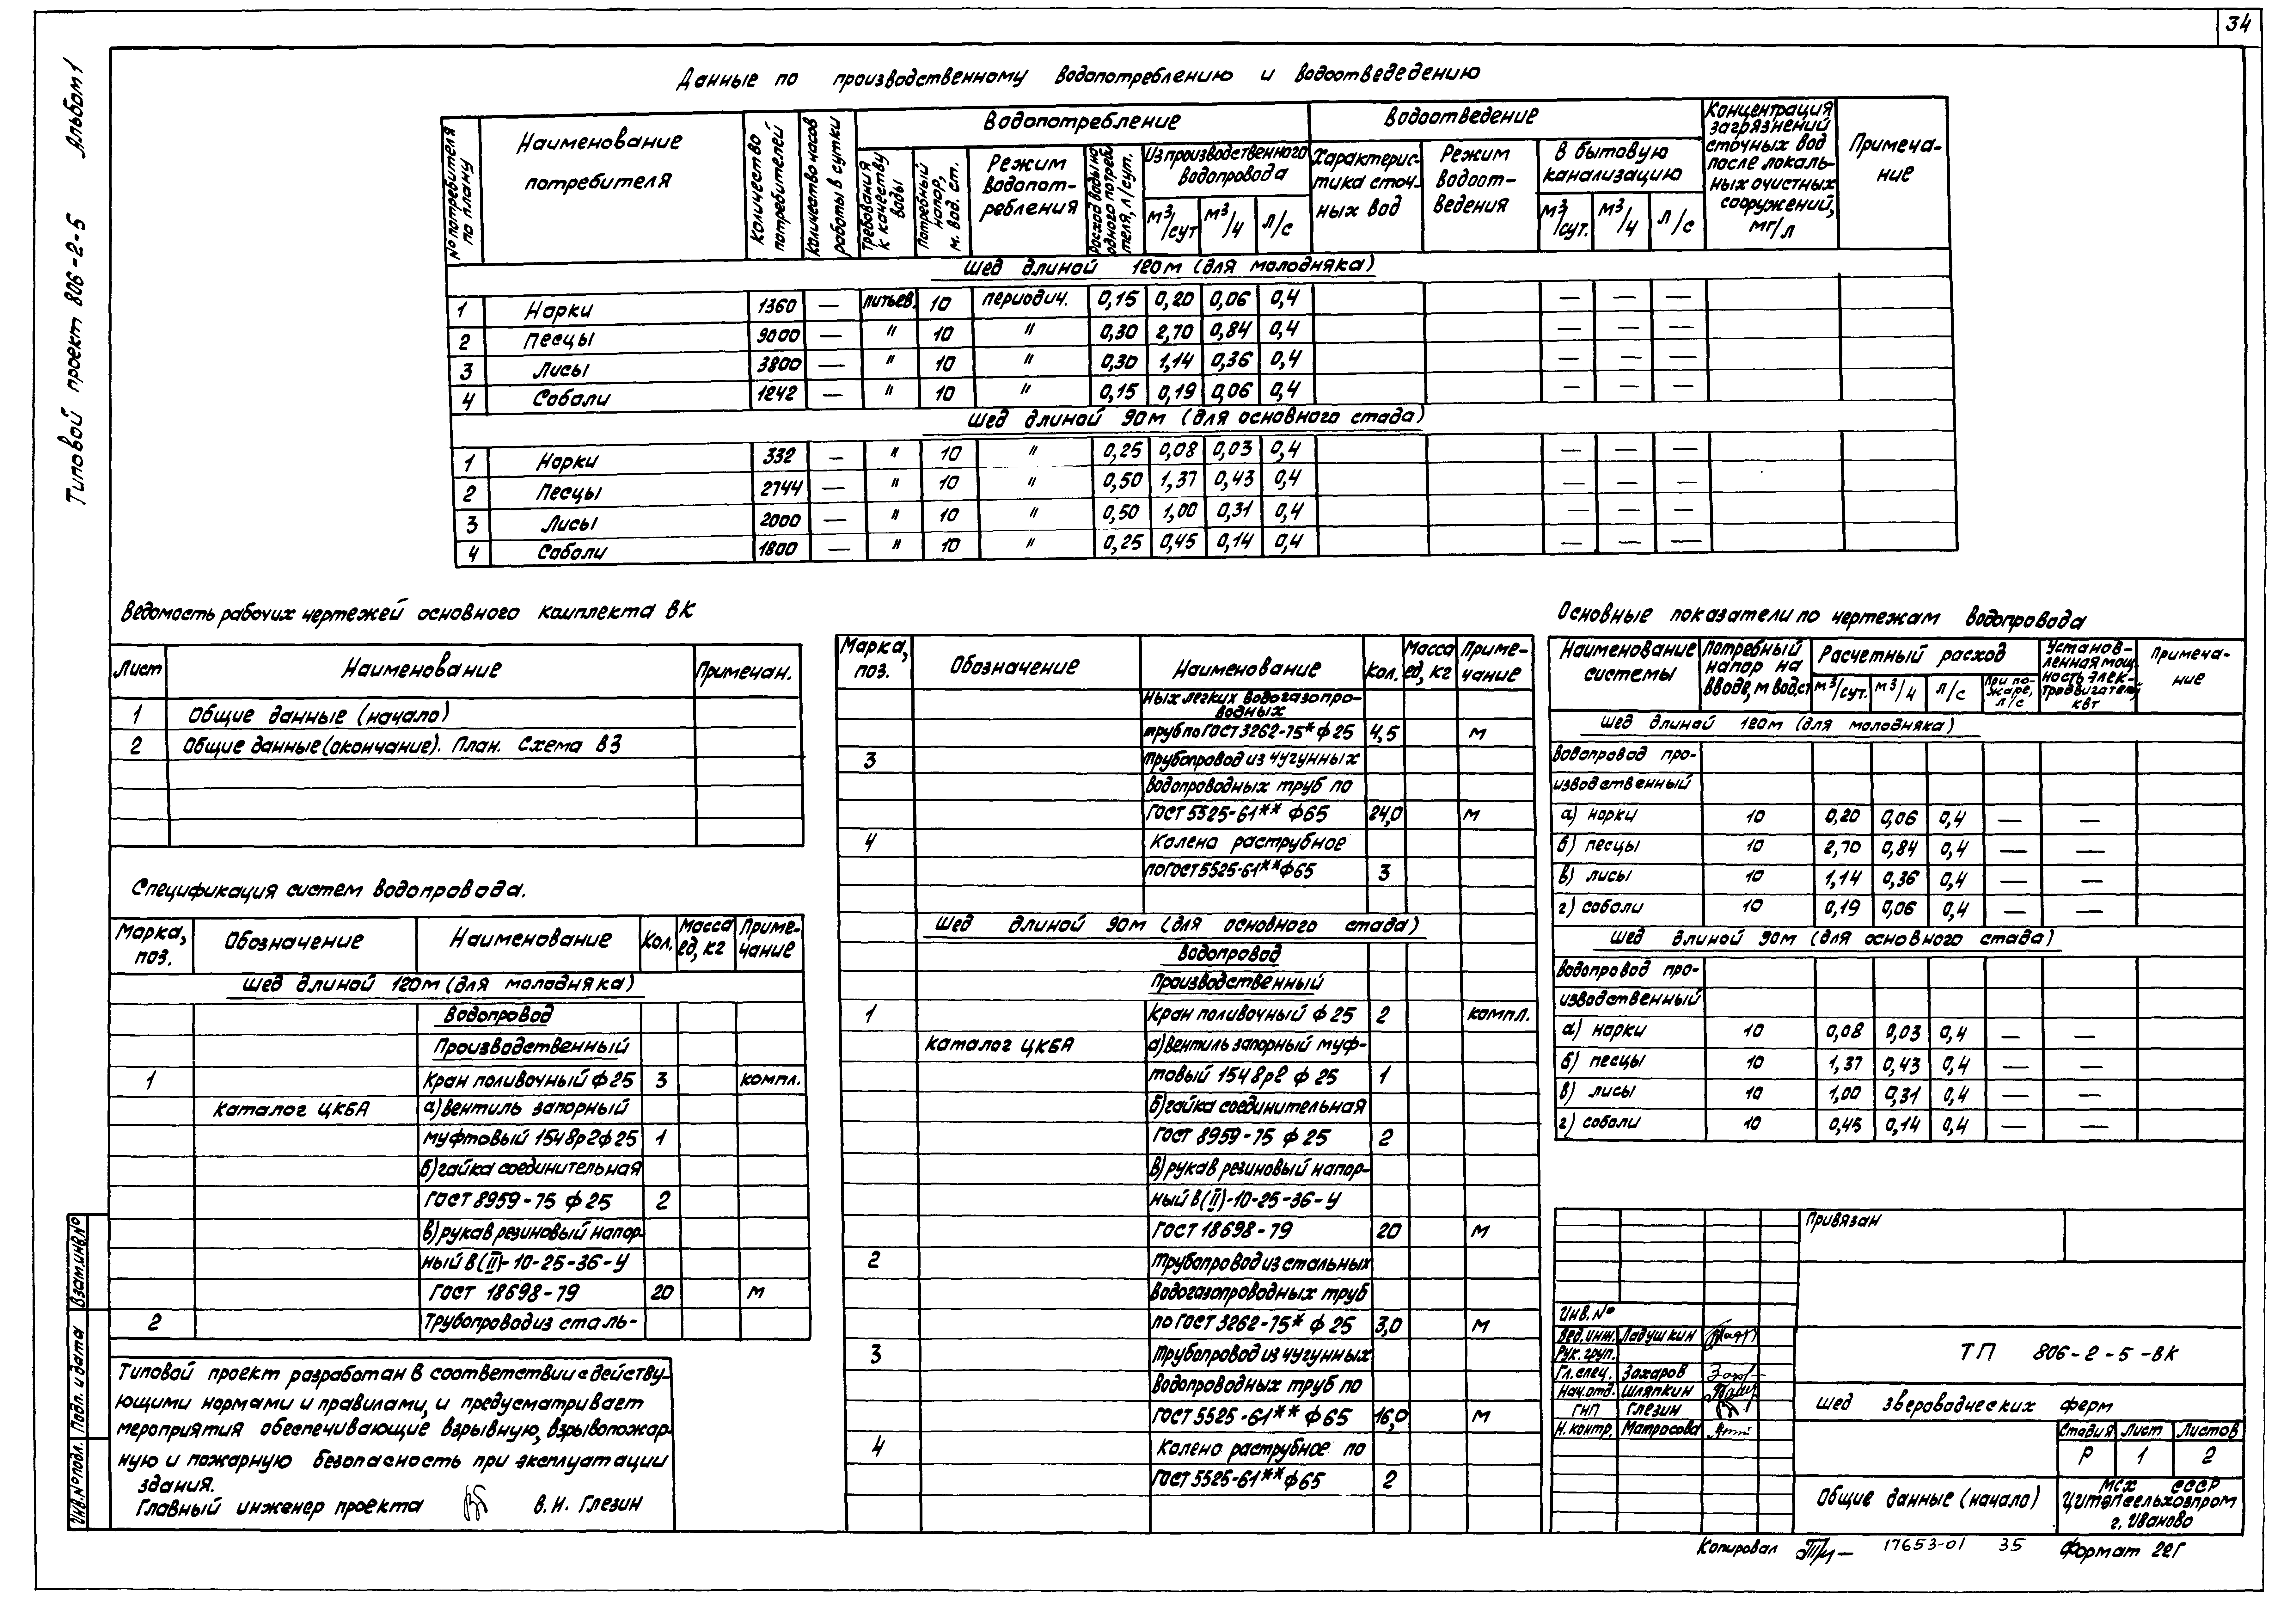 34
Типовой проект 806-2-5 Альбом 1
Данные по производственному водопотреблению и водоотведедению
№ потребителя по плану
Наименование потребителя
Количество потребителей
Количество часов работы в сутки
Водопотребление
Требования к качеству воды
Потребный напор, м. вод. ст.
Режим водопот-ребления
Расход воды на одного потреби теля, л/сут.
Из производственного водопровода
м³/сут м³/ч л/с
Водоотведение
Характерис-тика сточ-ных вод
Режим водоот-ведения
В бытовую канализацию
м³/сут. м³/ч л/с
Концентрация загрязнений сточных вод после локаль-ных очистных сооружений, мг/л
Примеча-ние
Шед длиной 120м (для молодняка)
1 Норки 1360 — питьев. 10 периодич. 0,15 0,20 0,06 0,4 — — —
2 Песцы 9000 — " 10 " 0,30 2,70 0,84 0,4 — — —
3 Лисы 3800 — " 10 " 0,30 1,14 0,36 0,4 — — —
4 Соболи 1242 — " 10 " 0,15 0,19 0,06 0,4 — — —
Шед длиной 90м (для основного стада)
1 Норки 332 — " 10 " 0,25 0,08 0,03 0,4 — — —
2 Песцы 2744 — " 10 " 0,50 1,37 0,43 0,4 — — —
3 Лисы 2000 — " 10 " 0,50 1,00 0,31 0,4 — — —
4 Соболи 1800 — " 10 " 0,25 0,45 0,14 0,4 — — —
Ведомость рабочих чертежей основного комплекта ВК
Лист Наименование Примечан.
1 Общие данные (начало)
2 Общие данные (окончание). План. Схема В3
Спецификация систем водопровода.
Марка, поз. Обозначение Наименование Кол. Масса ед, кг Приме-чание
Шед длиной 120м (для молодняка)
Водопровод
Производственный
1 Кран поливочный ф 25 3 компл.
каталог ЦКБА а) вентиль запорный
муфтовый 15ч8р2 ф 25 1
б) гайка соединительная
ГОСТ 8959-75 ф 25 2
в) рукав резиновый напор-
ный В(II)-10-25-36-У
ГОСТ 18698-79 20 м
2 Трубопровод из сталь-
Типовой проект разработан в соответствии с действу-
ющими нормами и правилами, и предусматривает
мероприятия обеспечивающие взрывную, взрывопожар-
ную и пожарную безопасность при эксплуатации
здания.
Главный инженер проекта В.Н. Глезин
Марка, поз. Обозначение Наименование Кол. Масса ед, кг Приме-чание
ных легких водогазопро-
водных
труб по ГОСТ 3262-75* ф 25 4,5 м
3 Трубопровод из чугунных
водопроводных труб по
ГОСТ 5525-61** ф65 24,0 м
4 Колено раструбное
по ГОСТ 5525-61** ф65 3
Шед длиной 90м (для основного стада)
Водопровод
Производственный
1 Кран поливочный ф 25 2 компл.
каталог ЦКБА а) вентиль запорный муф-
товый 15ч8р2 ф 25 1
б) гайка соединительная
ГОСТ 8959-75 ф 25 2
в) рукав резиновый напор-
ный В(II)-10-25-36-У
ГОСТ 18698-79 20 м
2 Трубопровод из стальных
водогазопроводных труб
по ГОСТ 3262-75* ф 25 3,0 м
3 Трубопровод из чугунных
водопроводных труб по
ГОСТ 5525-61** ф 65 16,0 м
4 Колено раструбное по
ГОСТ 5525-61** ф65 2
Основные показатели по чертежам водопровода
Наименование системы
Потребный напор на вводе, м вод.ст
Расчетный расход
м³/сут. м³/ч л/с При по-жаре, л/с
Установ-ленная мощ-ность элек-тродвигателя, квт
Примеча-ние
Шед длиной 120м (для молодняка)
Водопровод про-
изводственный
а) норки 10 0,20 0,06 0,4 — —
б) песцы 10 2,70 0,84 0,4 — —
в) лисы 10 1,14 0,36 0,4 — —
г) соболи 10 0,19 0,06 0,4 — —
Шед длиной 90м (для основного стада)
Водопровод про-
изводственный
а) норки 10 0,08 0,03 0,4 — —
б) песцы 10 1,37 0,43 0,4 — —
в) лисы 10 1,00 0,31 0,4 — —
г) соболи 10 0,45 0,14 0,4 — —
Привязан
Инв.№
Вед.инж. Ладушкин
Рук. груп.
Гл. спец. Захаров
Нач.отд. Шляпкин
ГИП Глезин
Н.контр. Матросова
ТП 806-2-5-ВК
Шед звероводческих ферм
Стадия Лист Листов
Р 1 2
Общие данные (начало)
МСХ СССР
Гипронисельхозпром
г. Иваново
Инв.№ подл. Подп. и дата Взам.инв.№
Копировал 17653-01 35 Формат 22Г